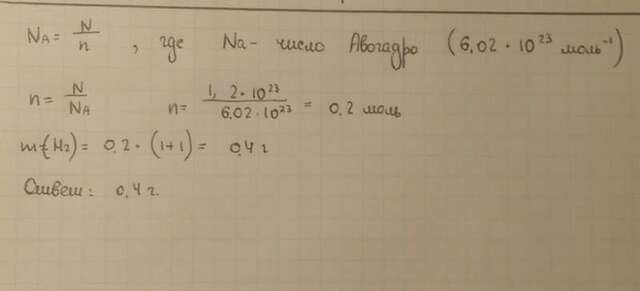 NA = N/n , где Na - число Авогадро (6,02 · 10²³ моль⁻¹)
n = N/NA n = 1,2·10²³/6,02·10²³ = 0,2 моль
m(H₂) = 0,2 · (1+1) = 0,4 г
Ответ: 0,4 г.